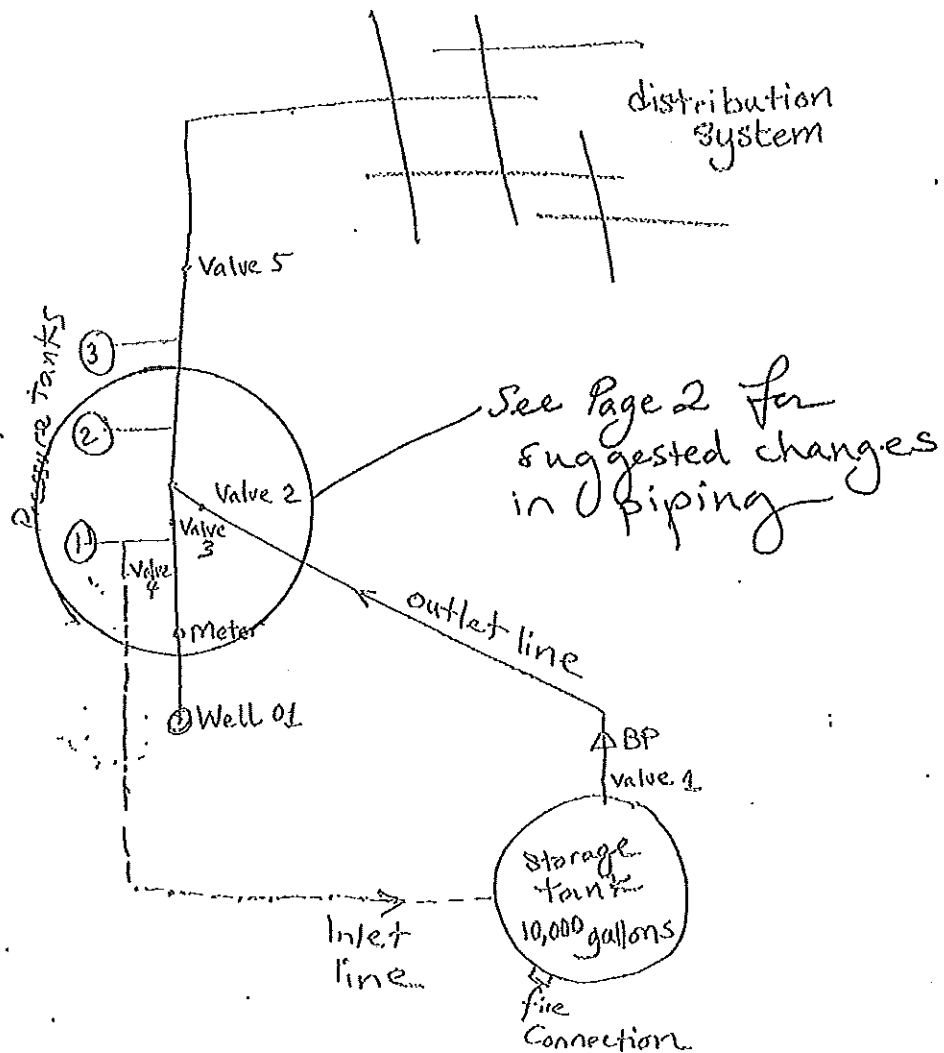 distribution
system
Valve 5
Pressure Tanks
3
2
See Page 2 for
suggested changes
in piping
Valve 2
Valve
3
1
Valve
4
outlet line
Meter
Well 01
BP
Valve 1
Storage
tank
10,000 gallons
Inlet
line
fire
Connection